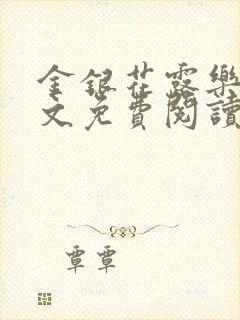 金銀花露樂
文免費閱讀
覃覃